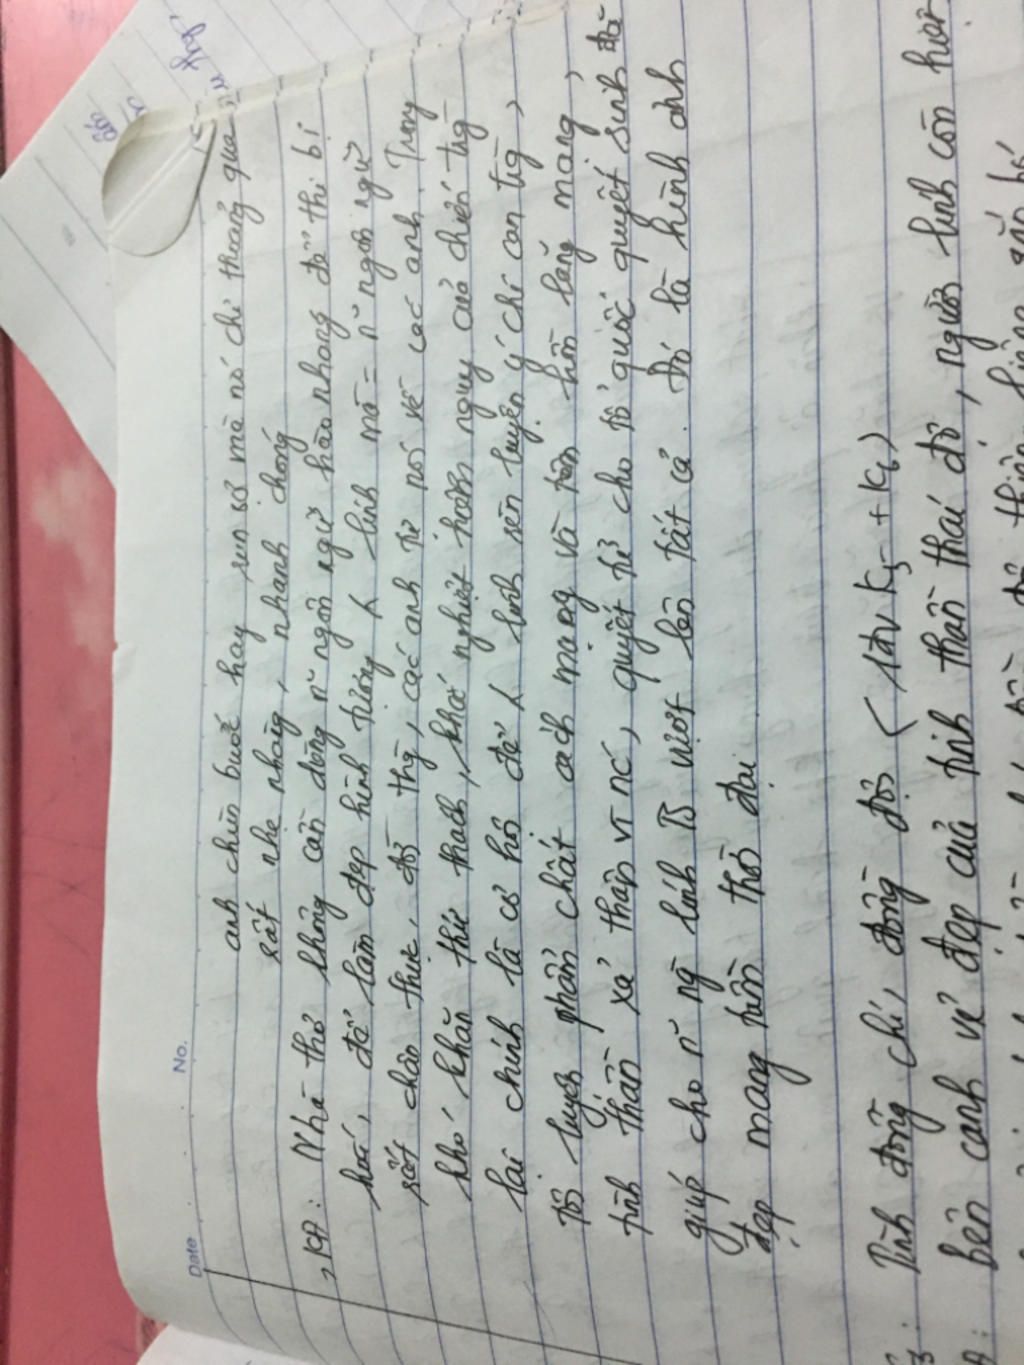 Date No.
anh chùn bước hay run sợ mà nó chỉ thoảng qua
rất nhẹ nhàng, nhanh chóng
KQ: Nhà thơ không cần dùng n~ ngôn ngữ hào nhoáng để thi bị
hoá, để làm đẹp hình tượng lính mà = n~ ngôn ngữ
rất chân thực, đời thg, các anh tự nói về các anh. Trong
khó khăn thử thách, khắc nghiệt hiểm nguy của chiến trg
lại chính là cơ hội để lính rèn luyện ý chí can trg,
tôi luyện phẩm chất cách mạng và tâm hồn lãng mạng,
tinh thần xả thân vì nc, quyết tử cho tổ quốc quyết sinh đã
giúp cho n~ ng lính TS vượt lên tất cả. Đó là hình ảnh
đẹp mang tầm thời đại
Tình đồng chí, đồng đội (K5 + K6)
bên cạnh vẻ đẹp của tinh thần thái độ, người lính còn hiện